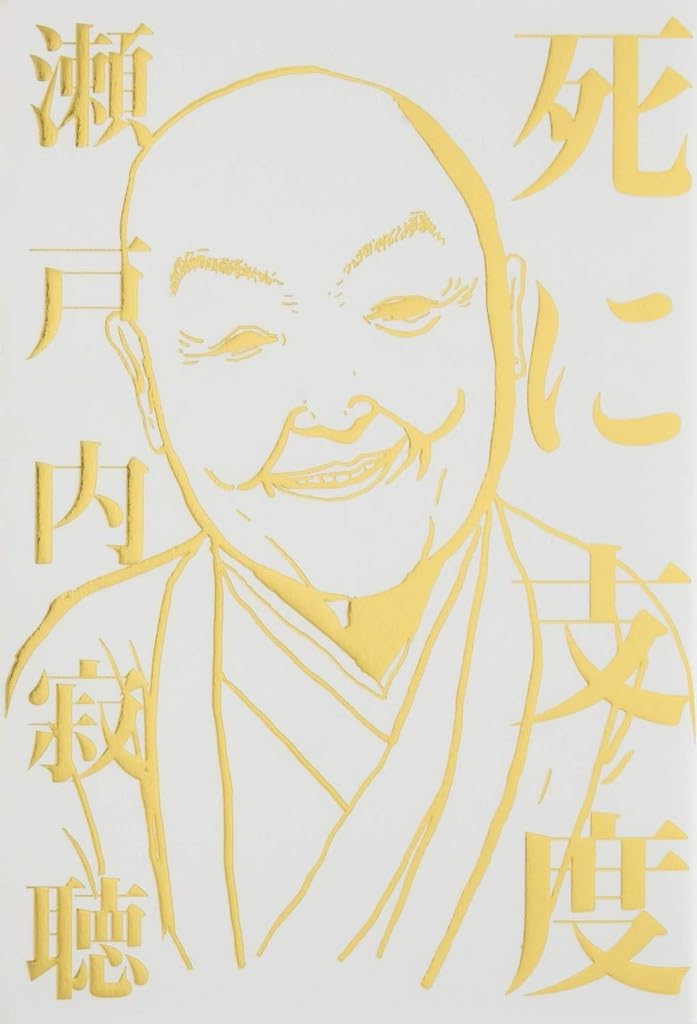 死に支度
瀬戸内寂聴